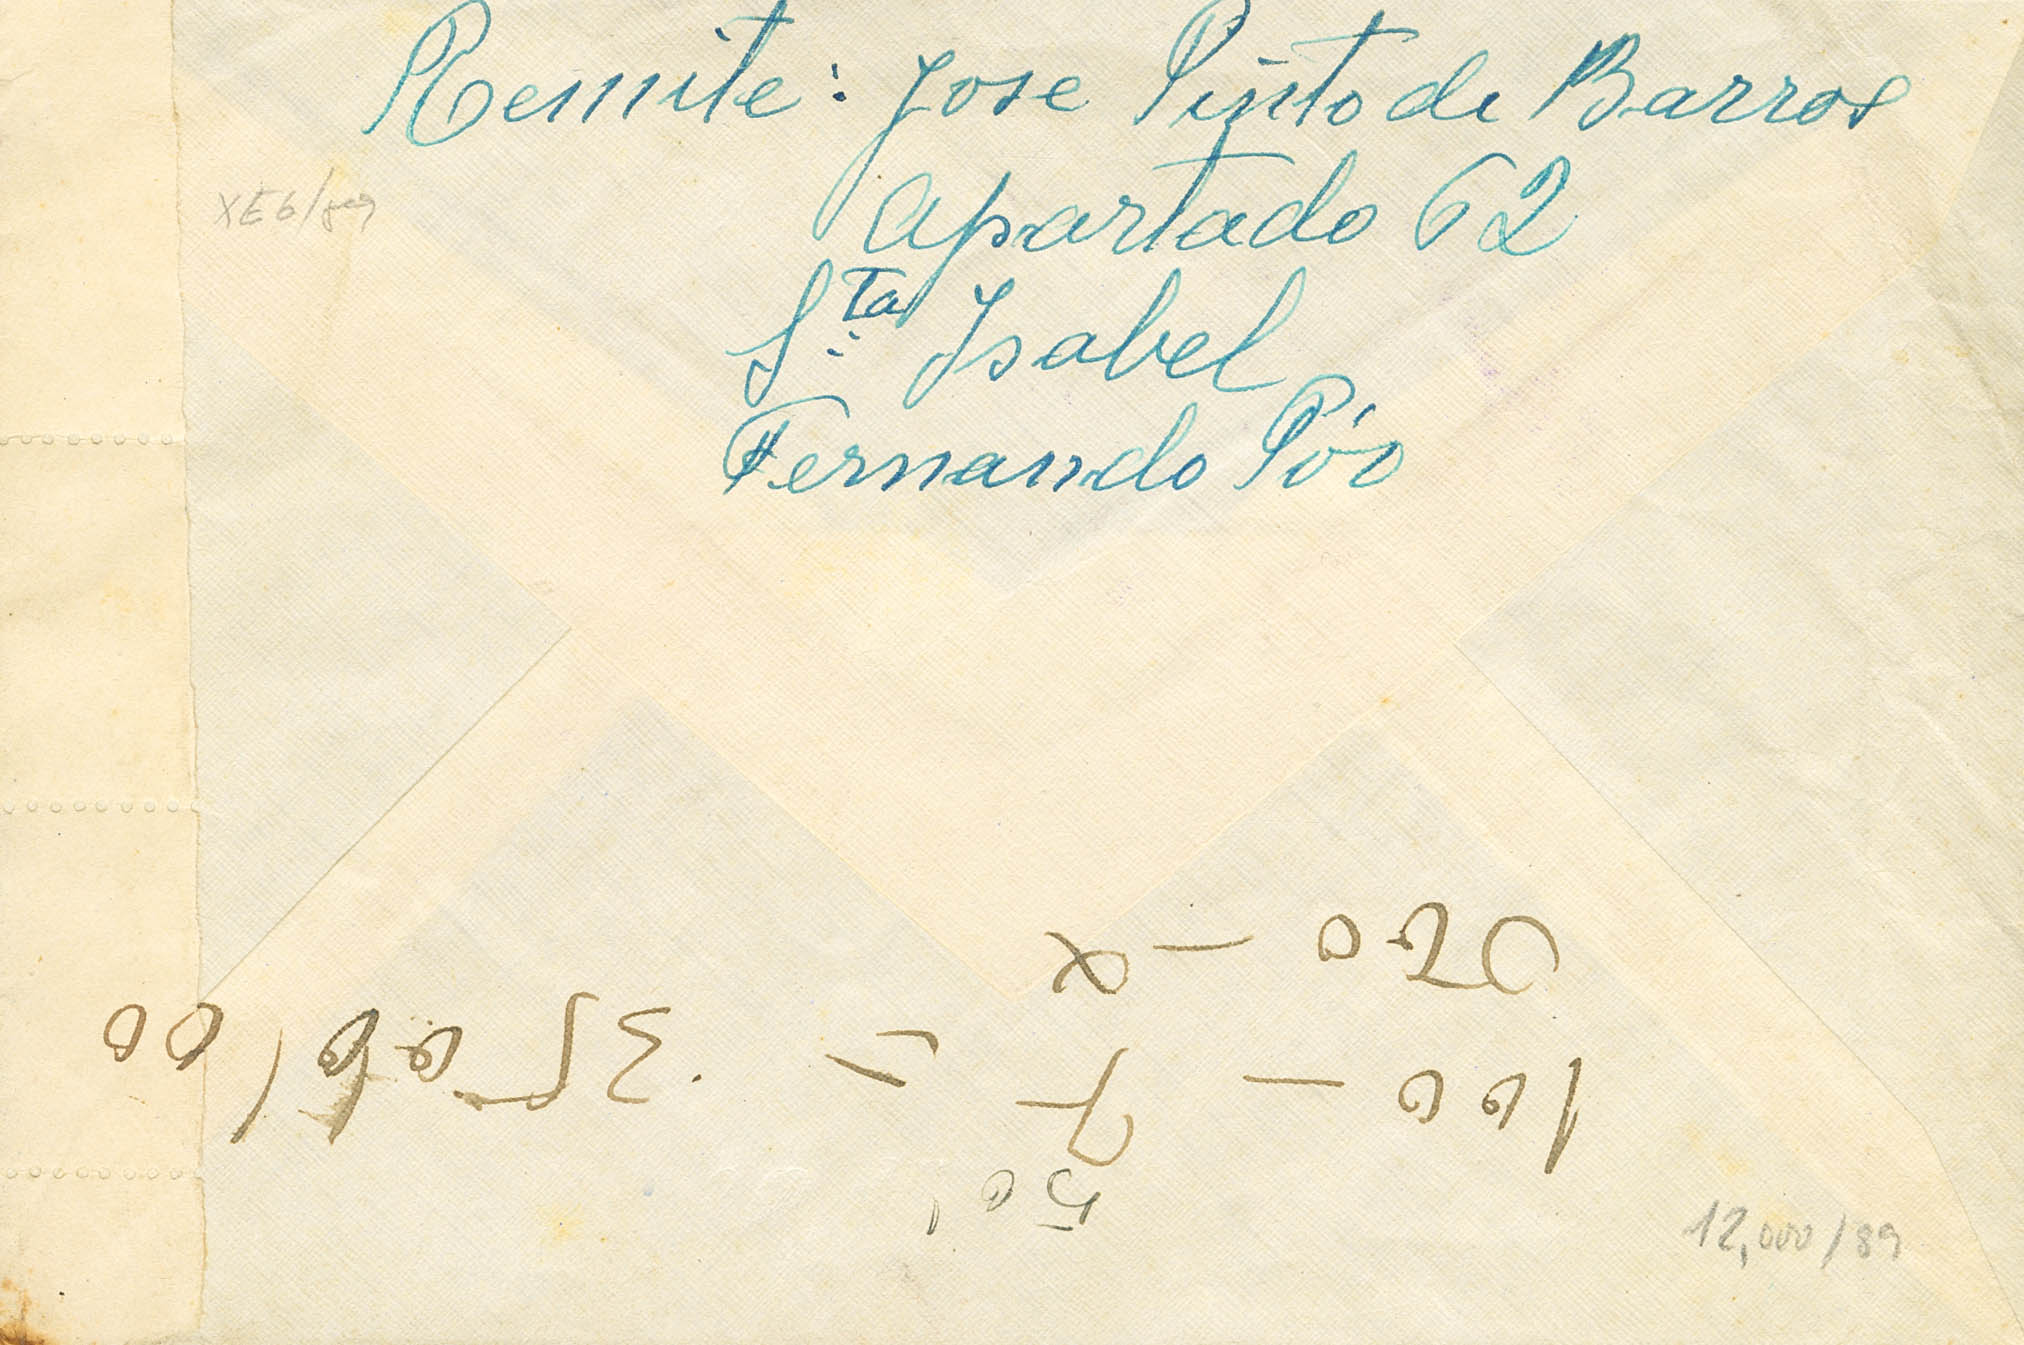 Remite: Jose Pinto de Barros
Apartado 62
Sta Isabel
Fernando Póo
12,000/89
50'
100 – 7 =